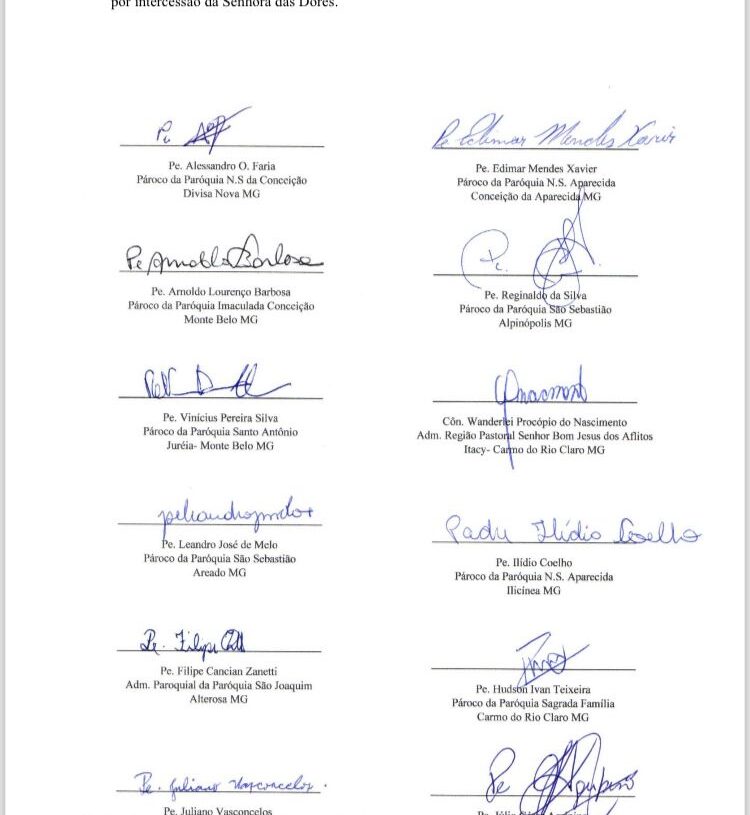 por intercessão da Senhora das Dores.
Pe
Pe. Alessandro O. Faria
Pároco da Paróquia N.S da Conceição
Divisa Nova MG
Pe Edimar Mendes Xavier
Pe. Edimar Mendes Xavier
Pároco da Paróquia N.S. Aparecida
Conceição da Aparecida MG
Pe Arnoldo Barbosa
Pe. Arnoldo Lourenço Barbosa
Pároco da Paróquia Imaculada Conceição
Monte Belo MG
Pe.
Pe. Reginaldo da Silva
Pároco da Paróquia São Sebastião
Alpinópolis MG
Pe. Vinícius Pereira Silva
Pároco da Paróquia Santo Antônio
Juréia- Monte Belo MG
Côn. Wanderlei Procópio do Nascimento
Adm. Região Pastoral Senhor Bom Jesus dos Aflitos
Itacy- Carmo do Rio Claro MG
Pe. Leandro José de Melo
Pároco da Paróquia São Sebastião
Areado MG
Padre Ilídio Coelho
Pe. Ilídio Coelho
Pároco da Paróquia N.S. Aparecida
Ilicínea MG
Pe. Filipe
Pe. Filipe Cancian Zanetti
Adm. Paroquial da Paróquia São Joaquim
Alterosa MG
Pe. Hudson Ivan Teixeira
Pároco da Paróquia Sagrada Família
Carmo do Rio Claro MG
Pe. Juliano Vasconcelos.
Pe. Juliano Vasconcelos
Pe